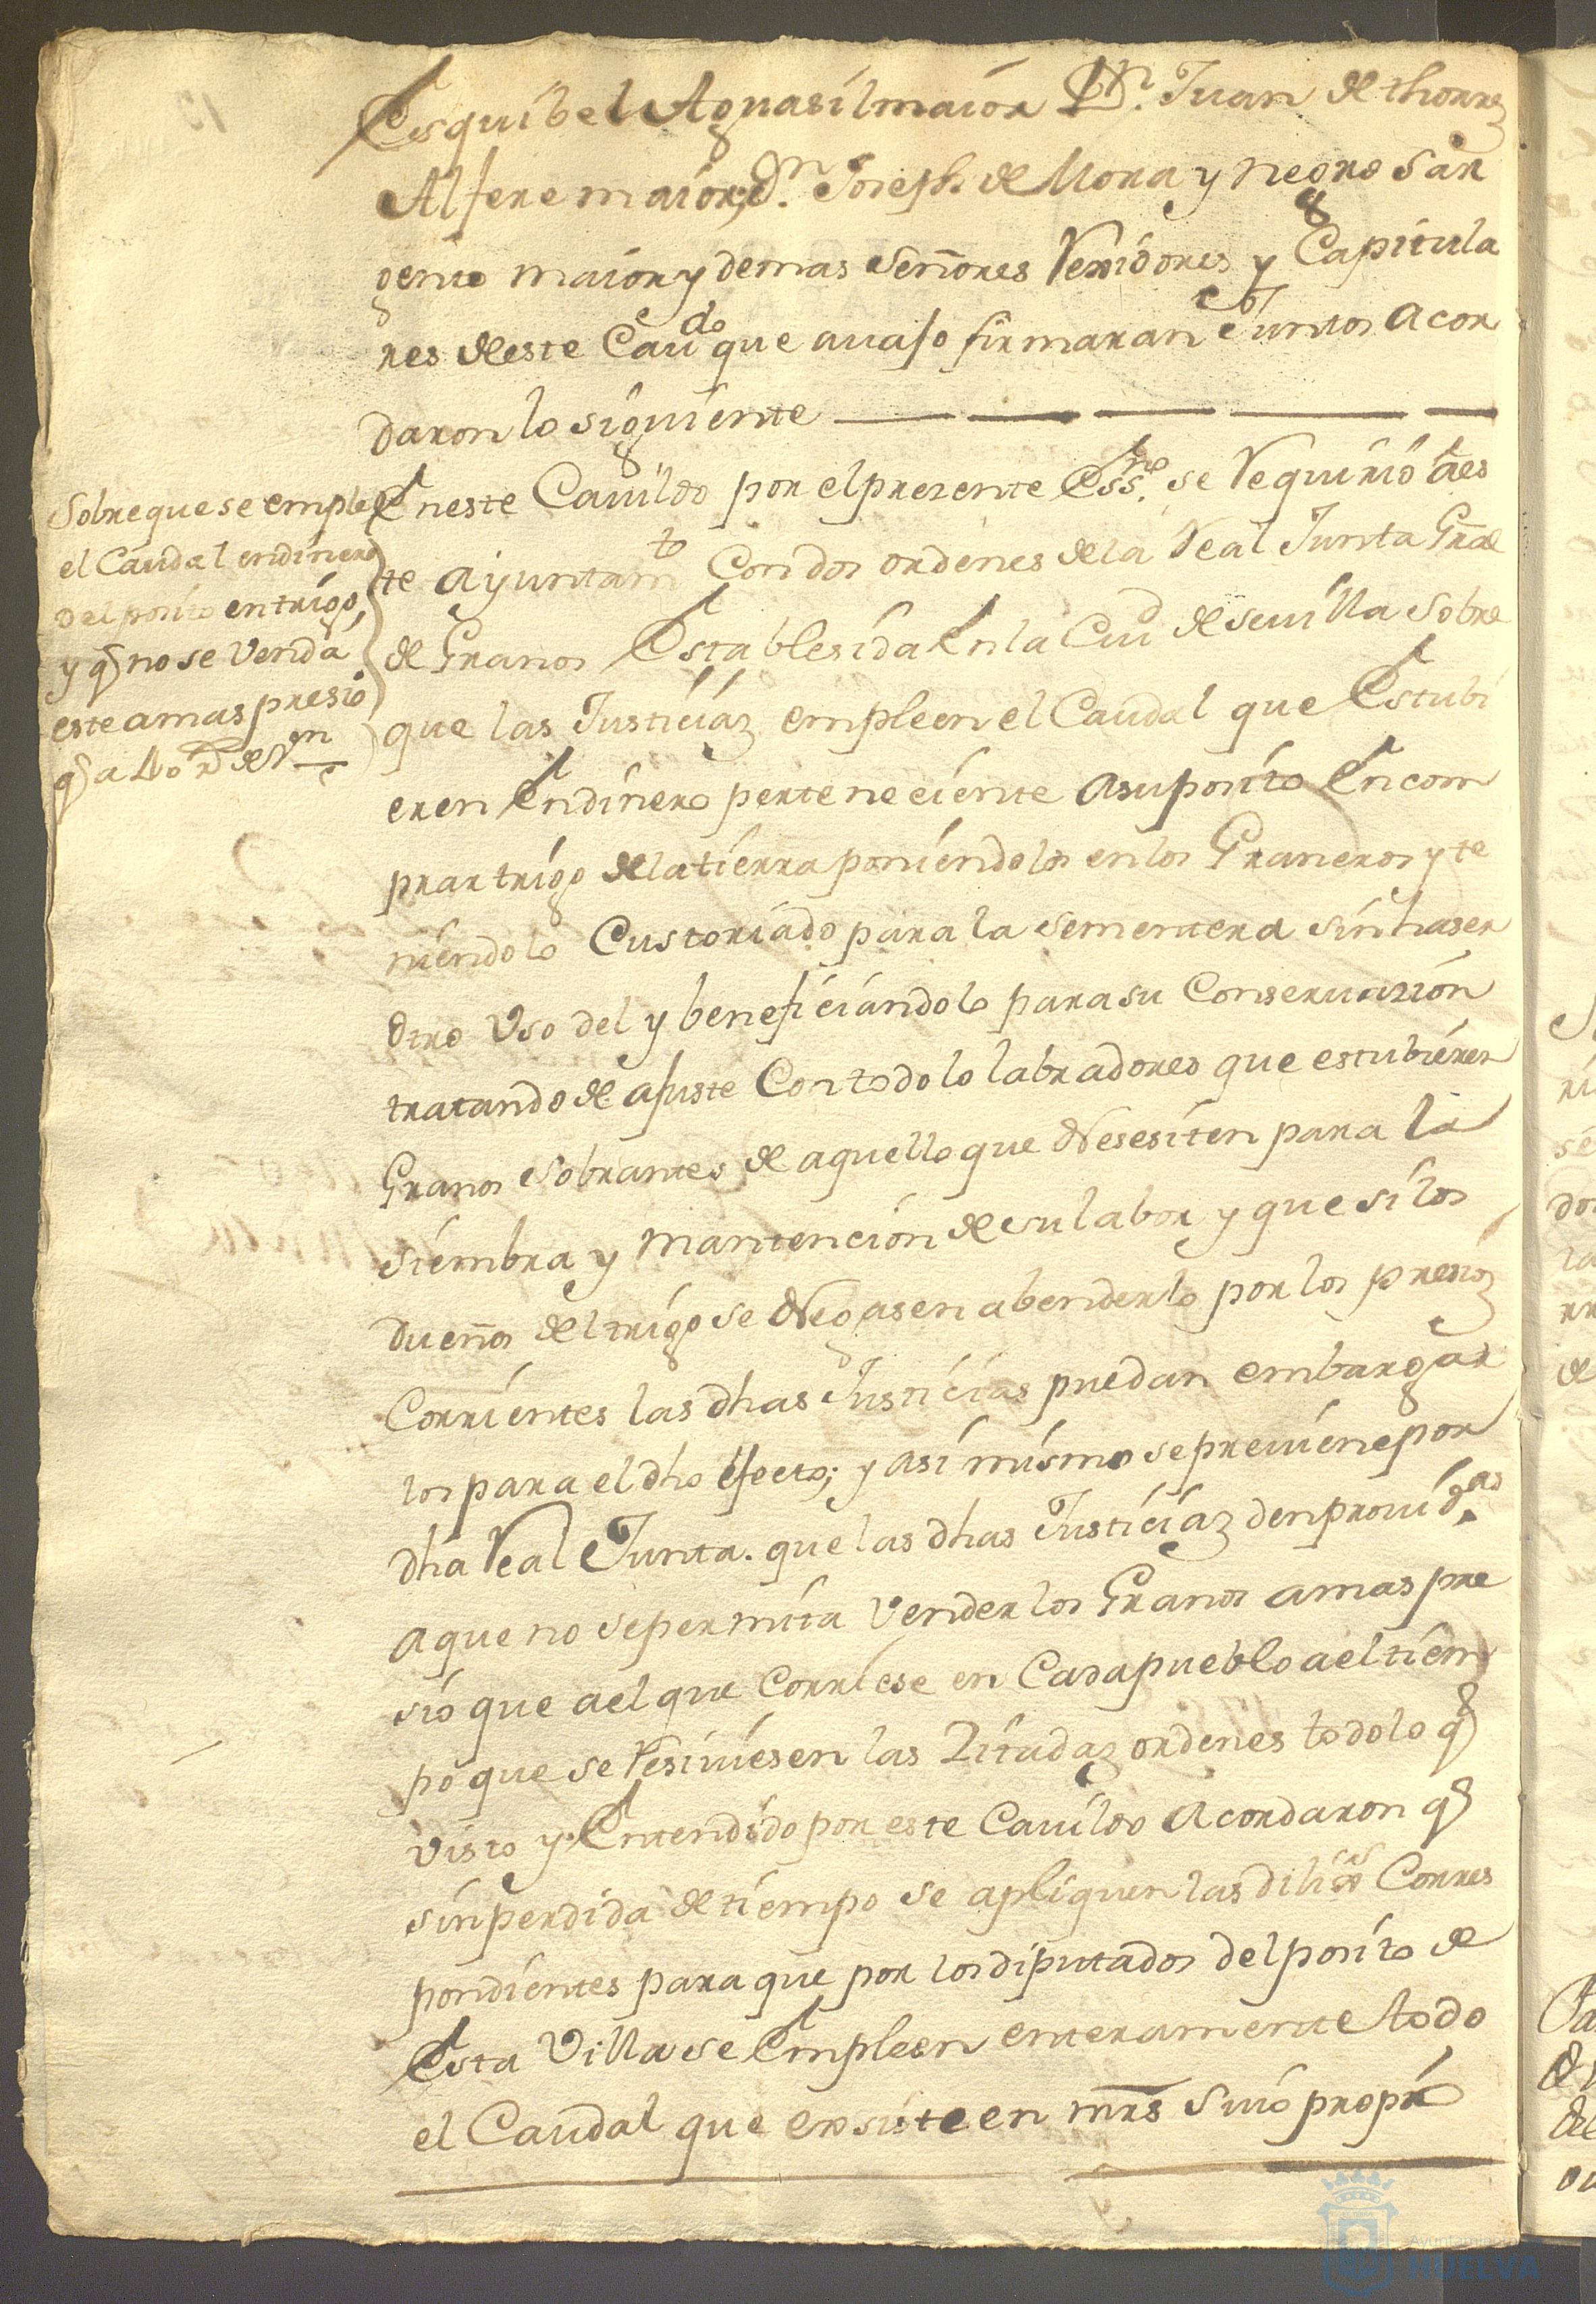 Esquibel Aguasil maior Dn. Juan de thorres
Alfere maior, Dn. Joseph de Mora y negro Sar
gento maior y demas señores Rexidores y Capitula
res deste Cavdo que avajo firmaran e Juntos acor
daron lo siguiente
Sobre que se emplee
el Caudal endinero
del posito en trigo,
y q no se venda
este a mas presio
q a 40 rs de vn
En este Cavildo por el prezente Essno. se Requirio a es
te ayuntamto Con dos ordenes de la Real Junta Gral
de Granos Establesida En la Ciud de sevilla sobre
que las Justiciaz empleen el Caudal que Estubi
eren En dinero perteneciente a su posito En com
prar trigo de la tierra poniendolos en los Graneros y te
niendolo Custoriado para la sementera sin haser
otro Uso del y beneficiandolo para su Conservazion
tratando de ajuste Con todo lo labradores que estubieren
Granos Sobrantes de aquello que Nesesiten para la
siembra y mantencion de su labor y que si los
dueños del trigo se Negasen a benderlo por los presioz
Corrientes las dhas Justicias puedan embargar
los para el dho efecto; y asi mismo se previene por
dha Real Junta. que las dhas Justiciaz den provid.as
a que no se permita Vender los Granos a mas pre
sio que a el que Corriese en Cada pueblo a el tiem
po que se Resiviesen las Zitadaz ordenes todo lo q
visto y Entendido por este Cavildo Acordaron q
sin perdida de tiempo se apliquen las diligas Corres
pondientes para que por los diputados del posito de
Esta Villa se Empleen enteramente todo
el Caudal que exsiste en mrs suio propio
Ayuntamiento
HUELVA